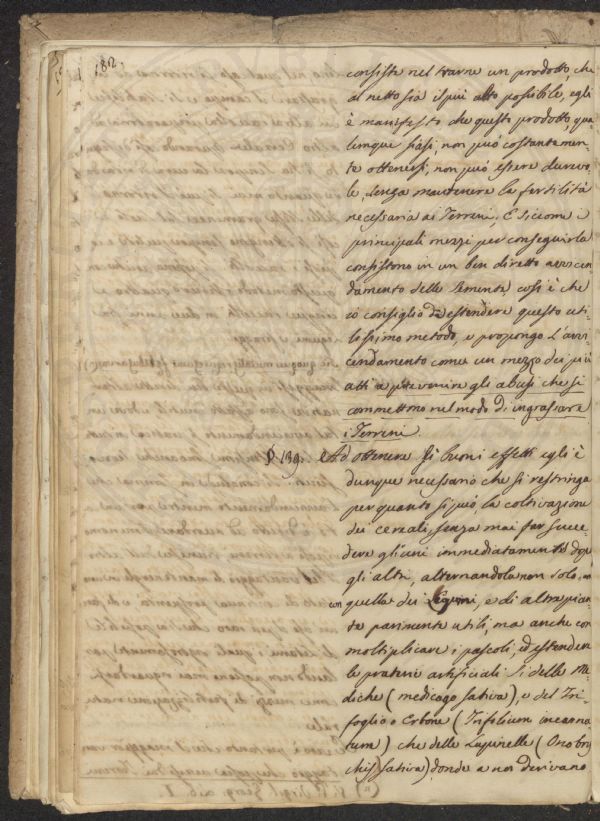 182.
consiste nel trarne un prodotto, che
al netto sia il più alto possibile, egli
è manifesto che questo prodotto, qua-
lunque siasi, non può costantemen-
te ottenersi, non può essere durevo-
le, senza mantenere la fertilità
necessaria ai Terreni. E siccome i
principali mezzi per conseguirla
consistono in un ben diretto avvicen-
damento delle Semente, così è che
io consiglio di estendere questo uti-
lissimo metodo, e propongo l'avvi-
cendamento come un mezzo dei più
atti a prevenire gli abusi che si
commettono nel modo di ingrassare
i Terreni.
§ 139. Ad ottenere sì buoni effetti egli è
dunque necessario che si restringa
per quanto si può, la coltivazione
dei cereali, senza mai far succe-
dere gli uni immediatamente dopo
gli altri, alternandola non solo,
con quella dei Legumi, e di altre pian-
te parimente utili, ma anche con
moltiplicare i pascoli, ed estendere
le praterie artificiali sì delle Me-
diche (medicago sativa), e del Tri-
foglio o Erbone (Trifolium incarna-
tum) che delle Lupinelle (Onobry-
chis sativa) donde a noi derivano